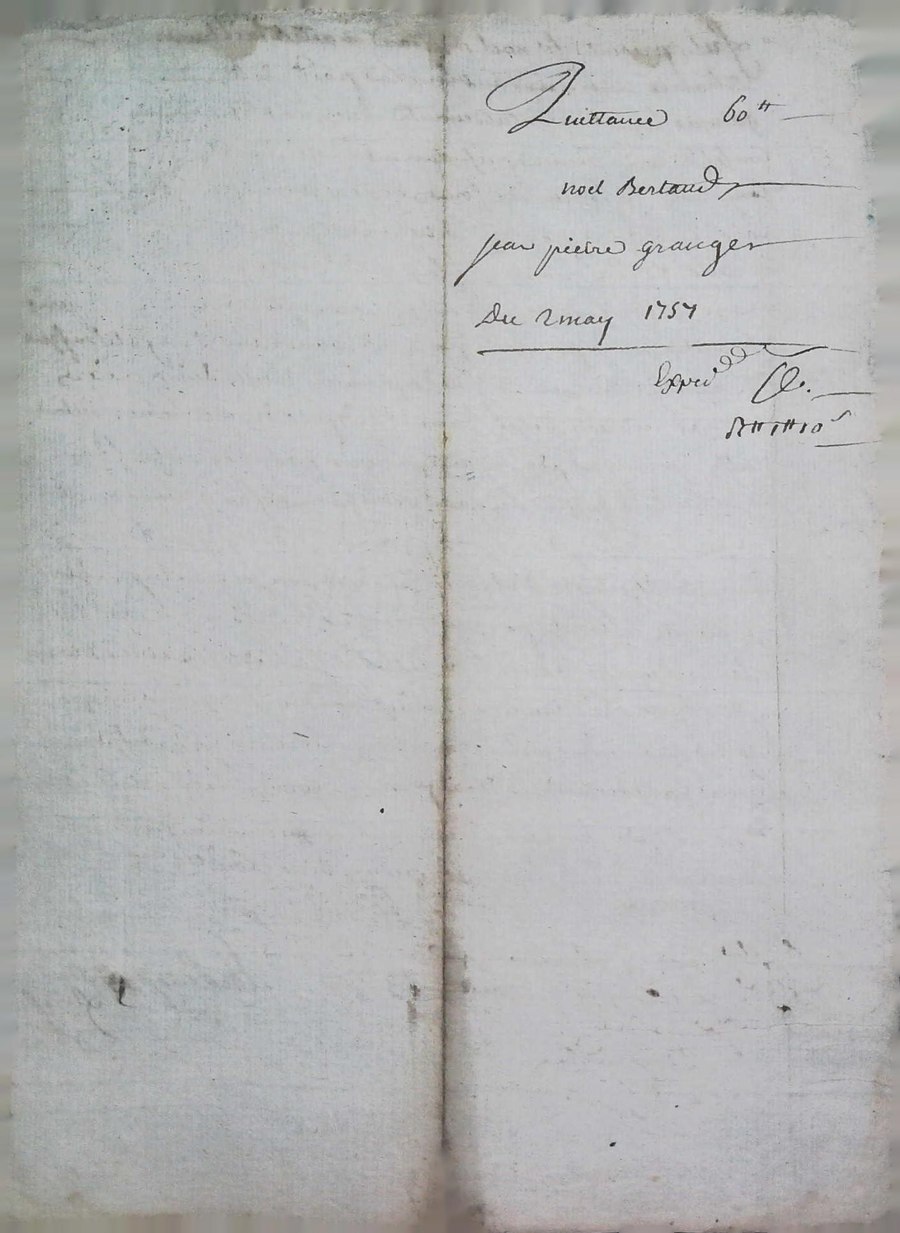 Quittance 60tt
noel Bertaud
jean pierre granger
Du 2 may 1757
Exped